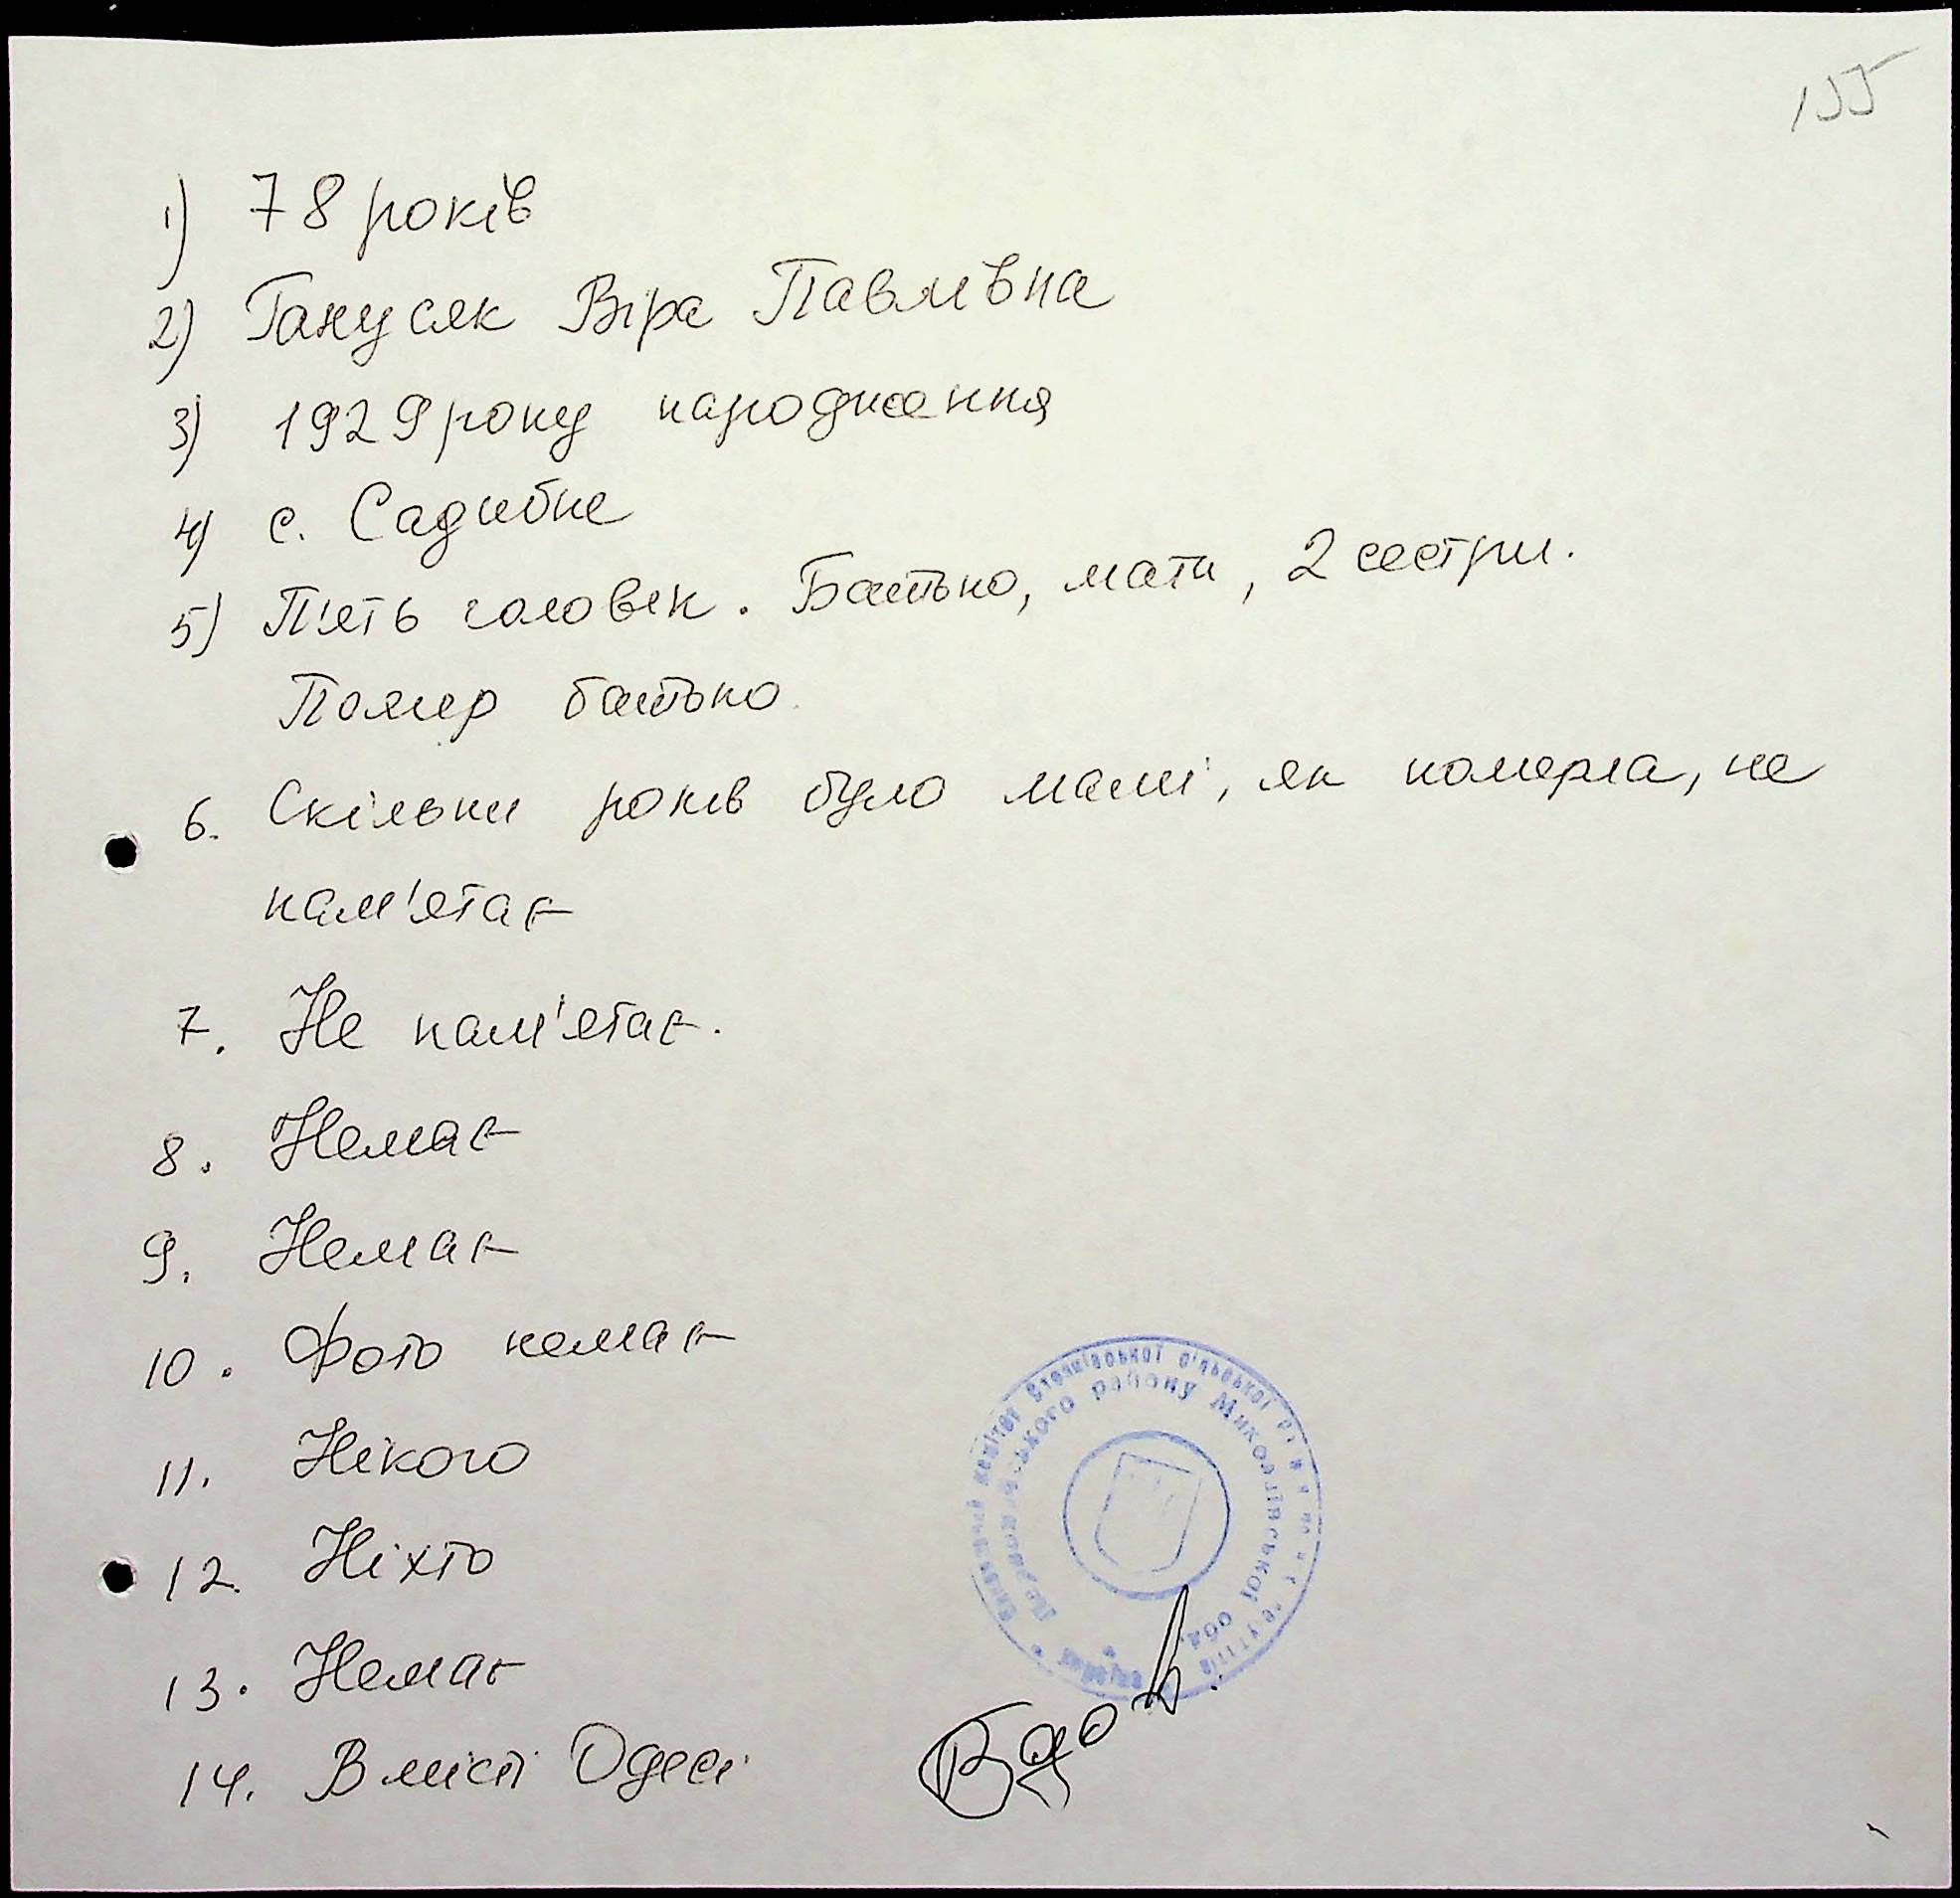 155
1) 78 років
2) Ганусяк Віра Павлівна
3) 1929 року народження
4) с. Садибне
5) П'ять чоловік. Батько, мати, 2 сестри.
Помер батько.
6. Скільки років було мамі, як померла, не
пам'ятає
7. Не пам'ятає.
8. Немає
9. Немає
10. Фото немає
11. Нікого
12. Ніхто
13. Немає
14. В місті Одесі
сільської
району Миколаївської обл.